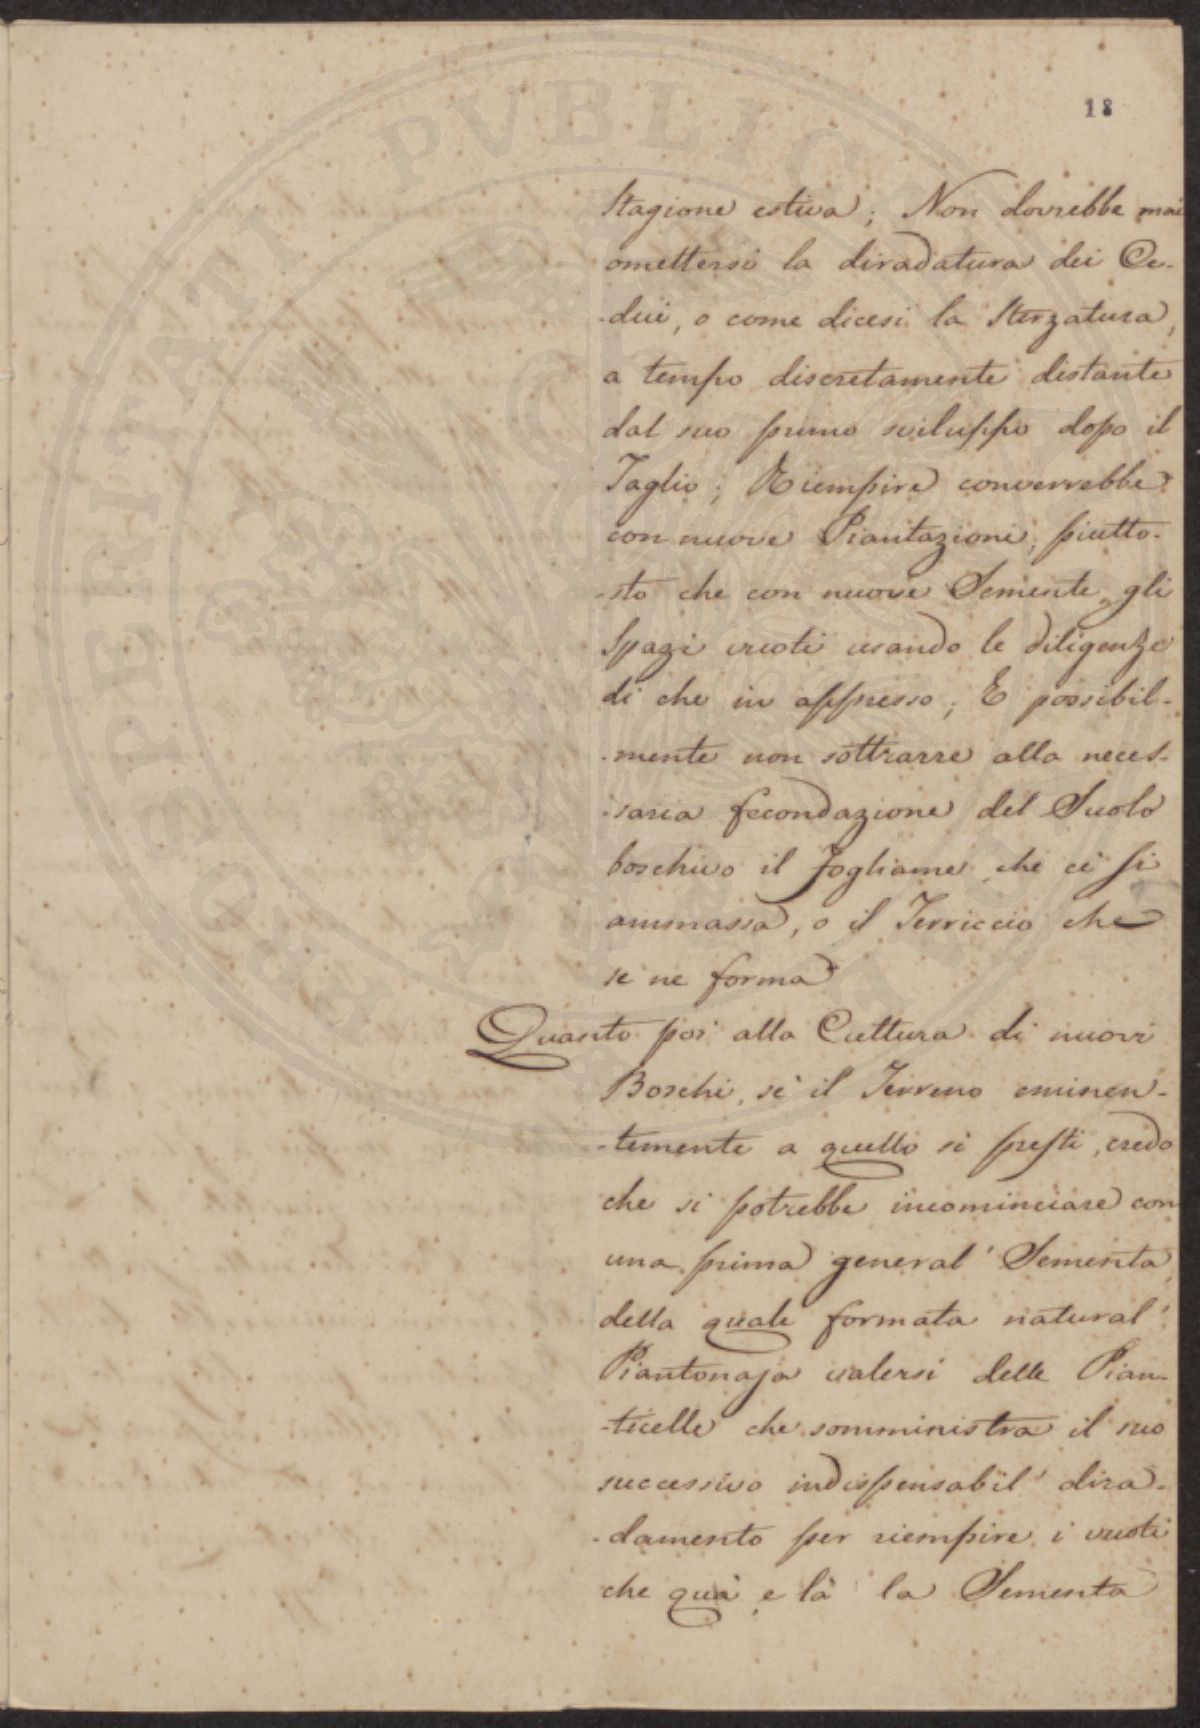 18
Stagione estiva; Non dovrebbe mai
omettersi la diradatura dei Ce-
-dui, o come dicesi la Sterzatura,
a tempo discretamente distante
dal suo primo sviluppo dopo il
Taglio; Riempire converrebbe
con nuove Piantazioni, piutto-
-sto che con nuove Semente, gli
Spazi vuoti usando le diligenze
di che in appresso; E possibil-
-mente non sottrarre alla neces-
-saria fecondazione del Suolo
boschivo il Fogliame che ci si
ammassa, o il Terriccio che
se ne forma
Quanto poi alla Cultura di nuovi
Boschi, se il Terreno eminen-
-temente a quello si presti, credo
che si potrebbe incominciare con
una prima general' Sementa,
della quale formata natural'
Piantonaja valersi delle Pian-
-ticelle che somministra il suo
successivo indispensabil' dira-
-damento per riempire i vuoti
che quà e là la Sementa
PROSPERITATI PVBLICAE